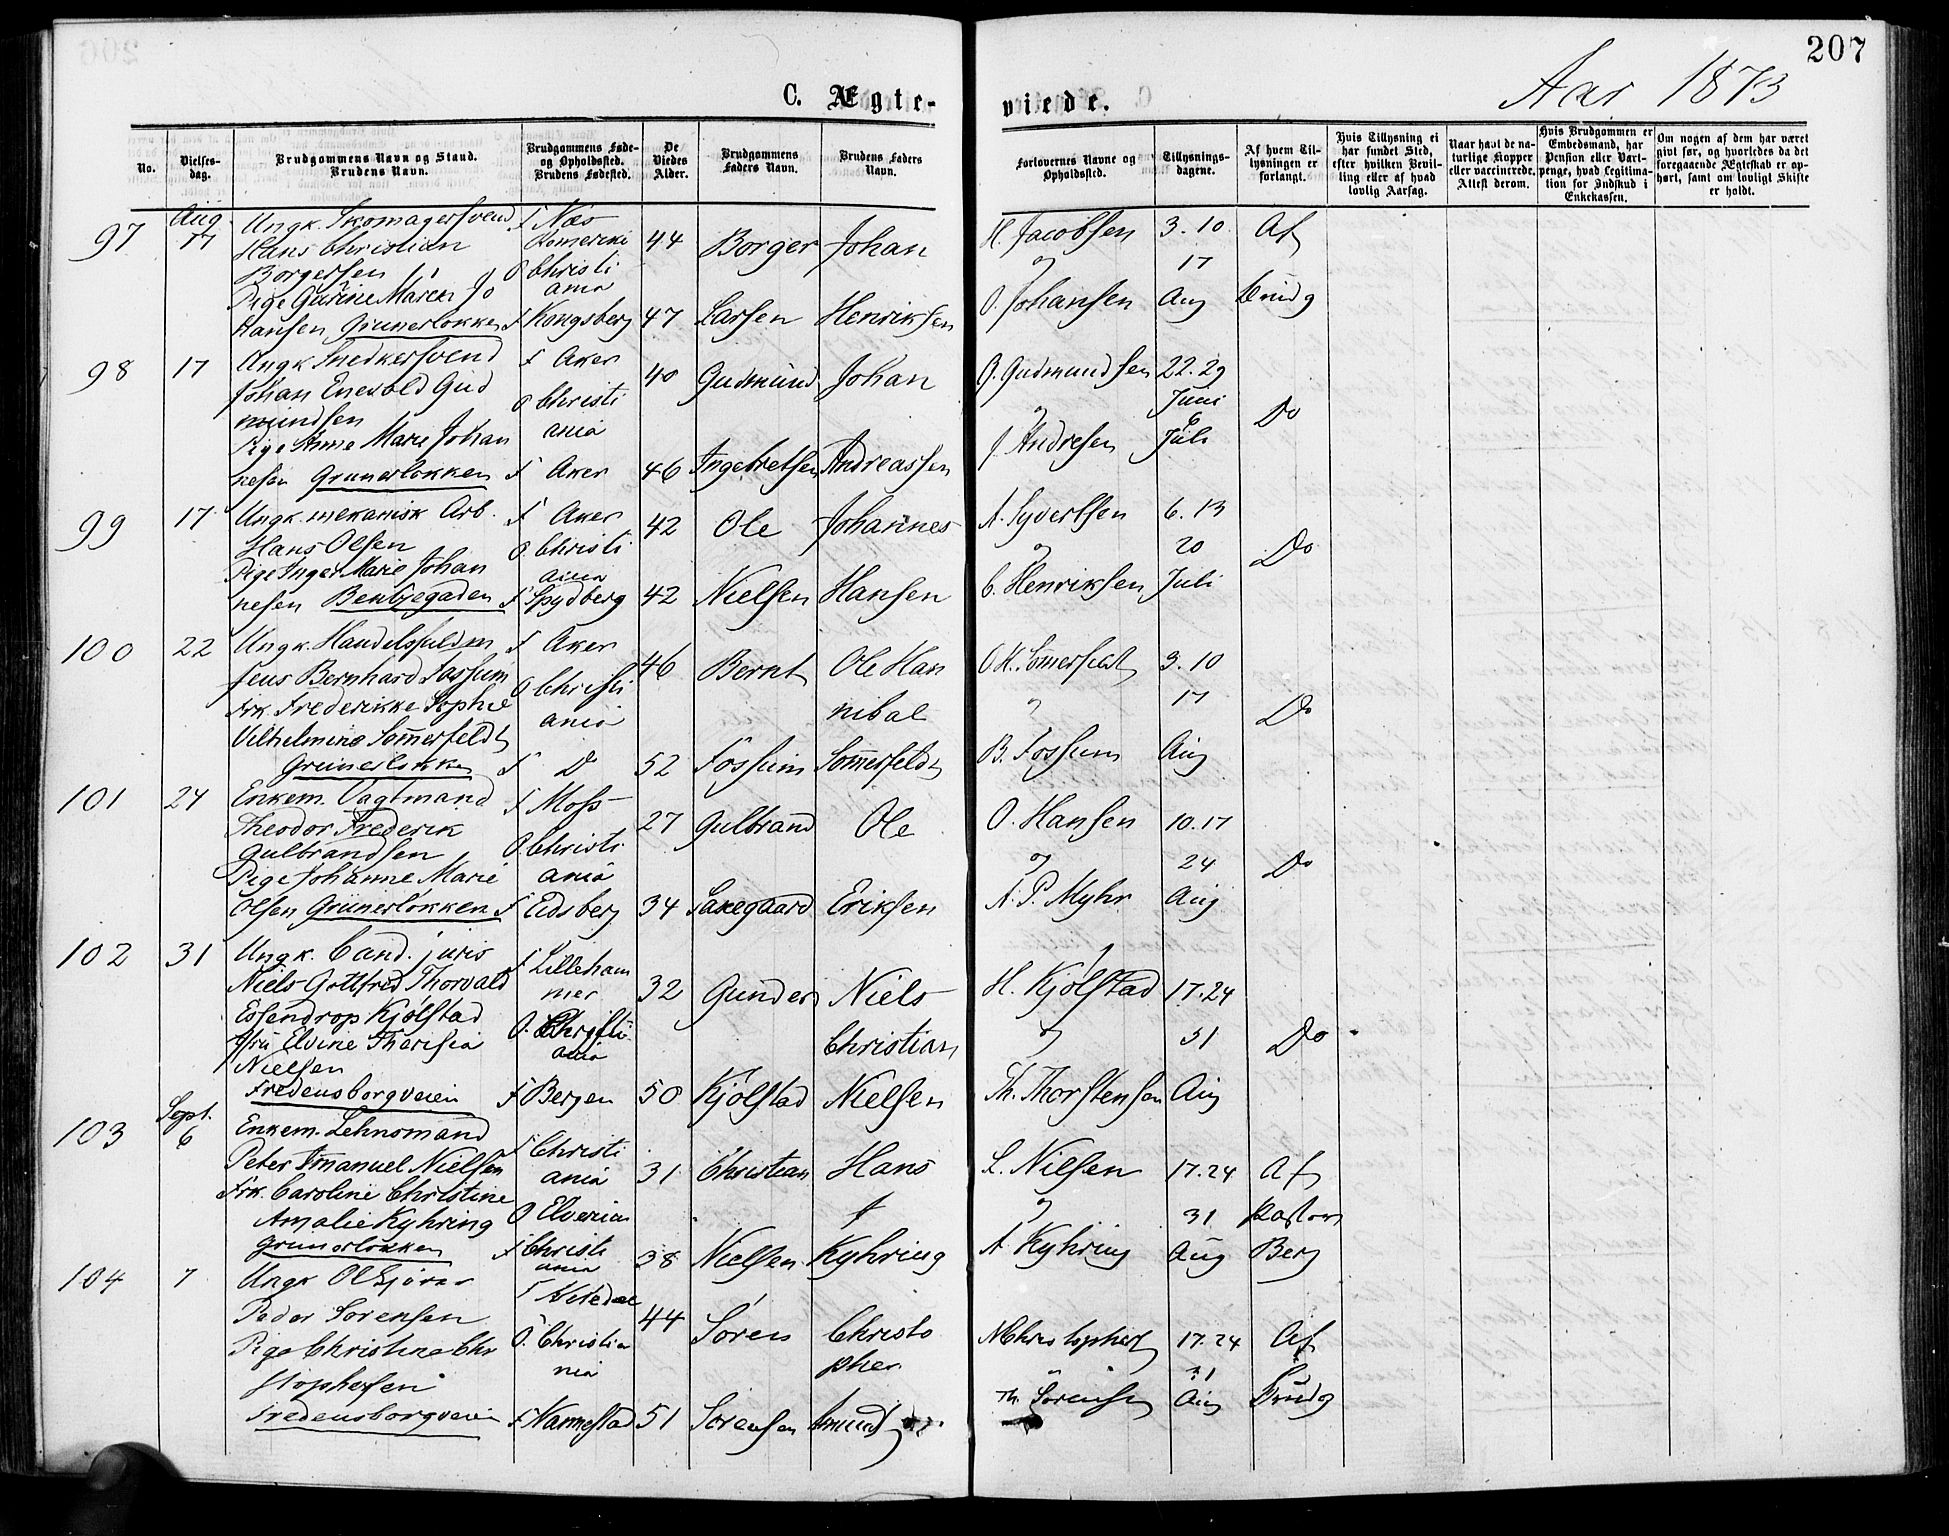 207
Aar 1873
C. Ægte-
viede.
No.
Vielses-
dag.
Brudgommens Navn og Stand.
Brudens Navn.
Brudgommens Føde-
og Opholdssted.
Brudens Fødested.
De
Viedes
Alder.
Brudgommens
Faders Navn.
Brudens Faders
Navn.
Forlovernes Navne og
Opholdssted.
Tillysnings-
dagene.
Af hvem Til-
lysningen er
forlangt.
Hvis Tillysning ei
har fundet Sted,
efter hvilken Bevil-
ling eller af hvad
lovlig Aarsag.
Naar havt de na-
turlige Kopper
eller vaccinerede.
Attest derom.
Hvis Brudgommen er
Embedsmand, har
Pension eller Vart-
penge, hvad Legitima-
tion for Indskud i
Enkekassen.
Om nogen af dem har været
givt før, og hvorledes da det
foregaaende Ægteskab er op-
hørt, samt om lovligt Skifte
er holdt.
97
Aug.
17
Ungk. Skomagersvend
Hans Christian
Borgersen
Pige Gurine Maren Jo
hansen Grunerløkken
F Næs
Romerike
O Christi
ania
F Kongsberg
44
47
Borger
Larsen
Johan
Henriksen
H. Jacobsen
og
O. Johansen
3. 10
17
Aug
Af
Brudg
98
17
Ungk Snedkersvend
Johan Enevold Gud
mundsen
Pige Anne Marie Johan
nesen Grunerløkken
F Aker
O Christi
ania
F Aker
40
46
Gudmund
Ingebretsen
Johan
Andreassen
G. Gudmundsen
og
J. Andresen
22. 29
Juni
6
Juli
Do
99
17
Ungk. mekanisk Arb.
Hans Olsen
Pige Inger Marie Johan
nesen Bentzegaden
F Aker
O. Christi
ania
F Spydberg
42
42
Ole
Nielsen
Johannes
Hansen
A. Syvertsen
og
C. Henriksen
6. 13
20
Juli
Do
100
22
Ungk. Handelsfuldm
Jens Bernhard Fossum
Frk. Frederikke Sophie
Vilhelmine Sommerfeldt
Grunerløkken
F Aker
O Christi
ania
F D
46
52
Bernt
Fossum
Ole Han
nibal
Sommerfeldt
O H. Sommerfeldt
og
B. Fossum
3. 10
17
Aug
Do
101
24
Enkem. Vagtmand
Theodor Frederik
Gulbrandsen
Pige Johanne Marie
Olsen Grunerløkken
F Moss
O. Christi
ania
F Eidsberg
27
34
Gulbrand
Saxegaard
Ole
Eriksen
O. Hansen
og
A. P. Myhr
10. 17
24
Aug
Do
102
31
Ungk. Cand. juris
Niels Gottfred Thorvald
Esendrop Kjølstad
Fru Elvine Theresia
Nielsen
Fredensborgveien
F Lilleham
mer
O. Christi
ania
F Bergen
32
50
Gunder
Kjølstad
Niels
Christian
Nielsen
H. Kjølstad
og
Th. Thorstensen
17. 24
31
Aug
Do
103
Sept.
6
Enkem. Lehnsmand
Peter Emanuel Nielsen
Frk. Caroline Christine
Amalie Kyhring
Grunerløkken
F Christi
ania
O Elverum
F Christi
ania
31
38
Christian
Nielsen
Hans
F
Kyhring
L. Nielsen
og
A. Kyhring
17. 24
31
Aug
Af
Pastor
Berg
104
7
Ungk
Peder Sørensen
Pige Christine Chr
stophersen
Fredensborgveien
F
O. Christia
nia
F Nannestad
44
51
Søren
Sørensen
Christo
pher
Amunds
N Christophers
og
Th. Sørensen
17. 24
31
Aug
Af
Brudg